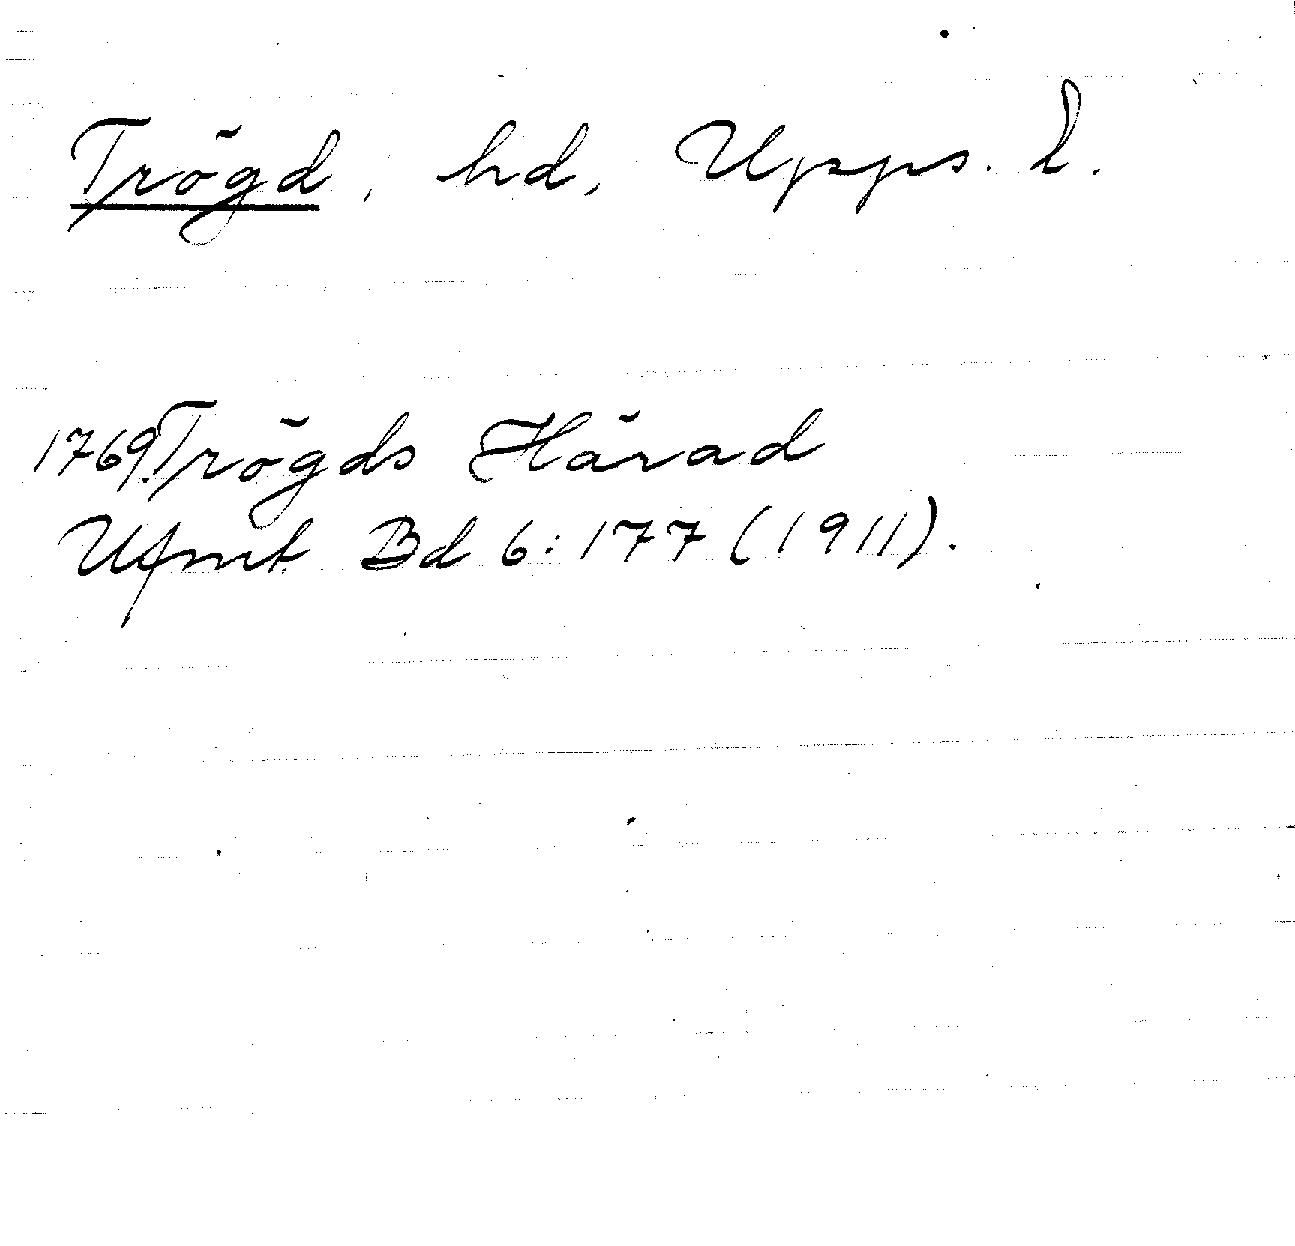 Trögd, hd, Upps. l.
1769. Trögds Härad
Ufmt Bd 6:177 (1911).